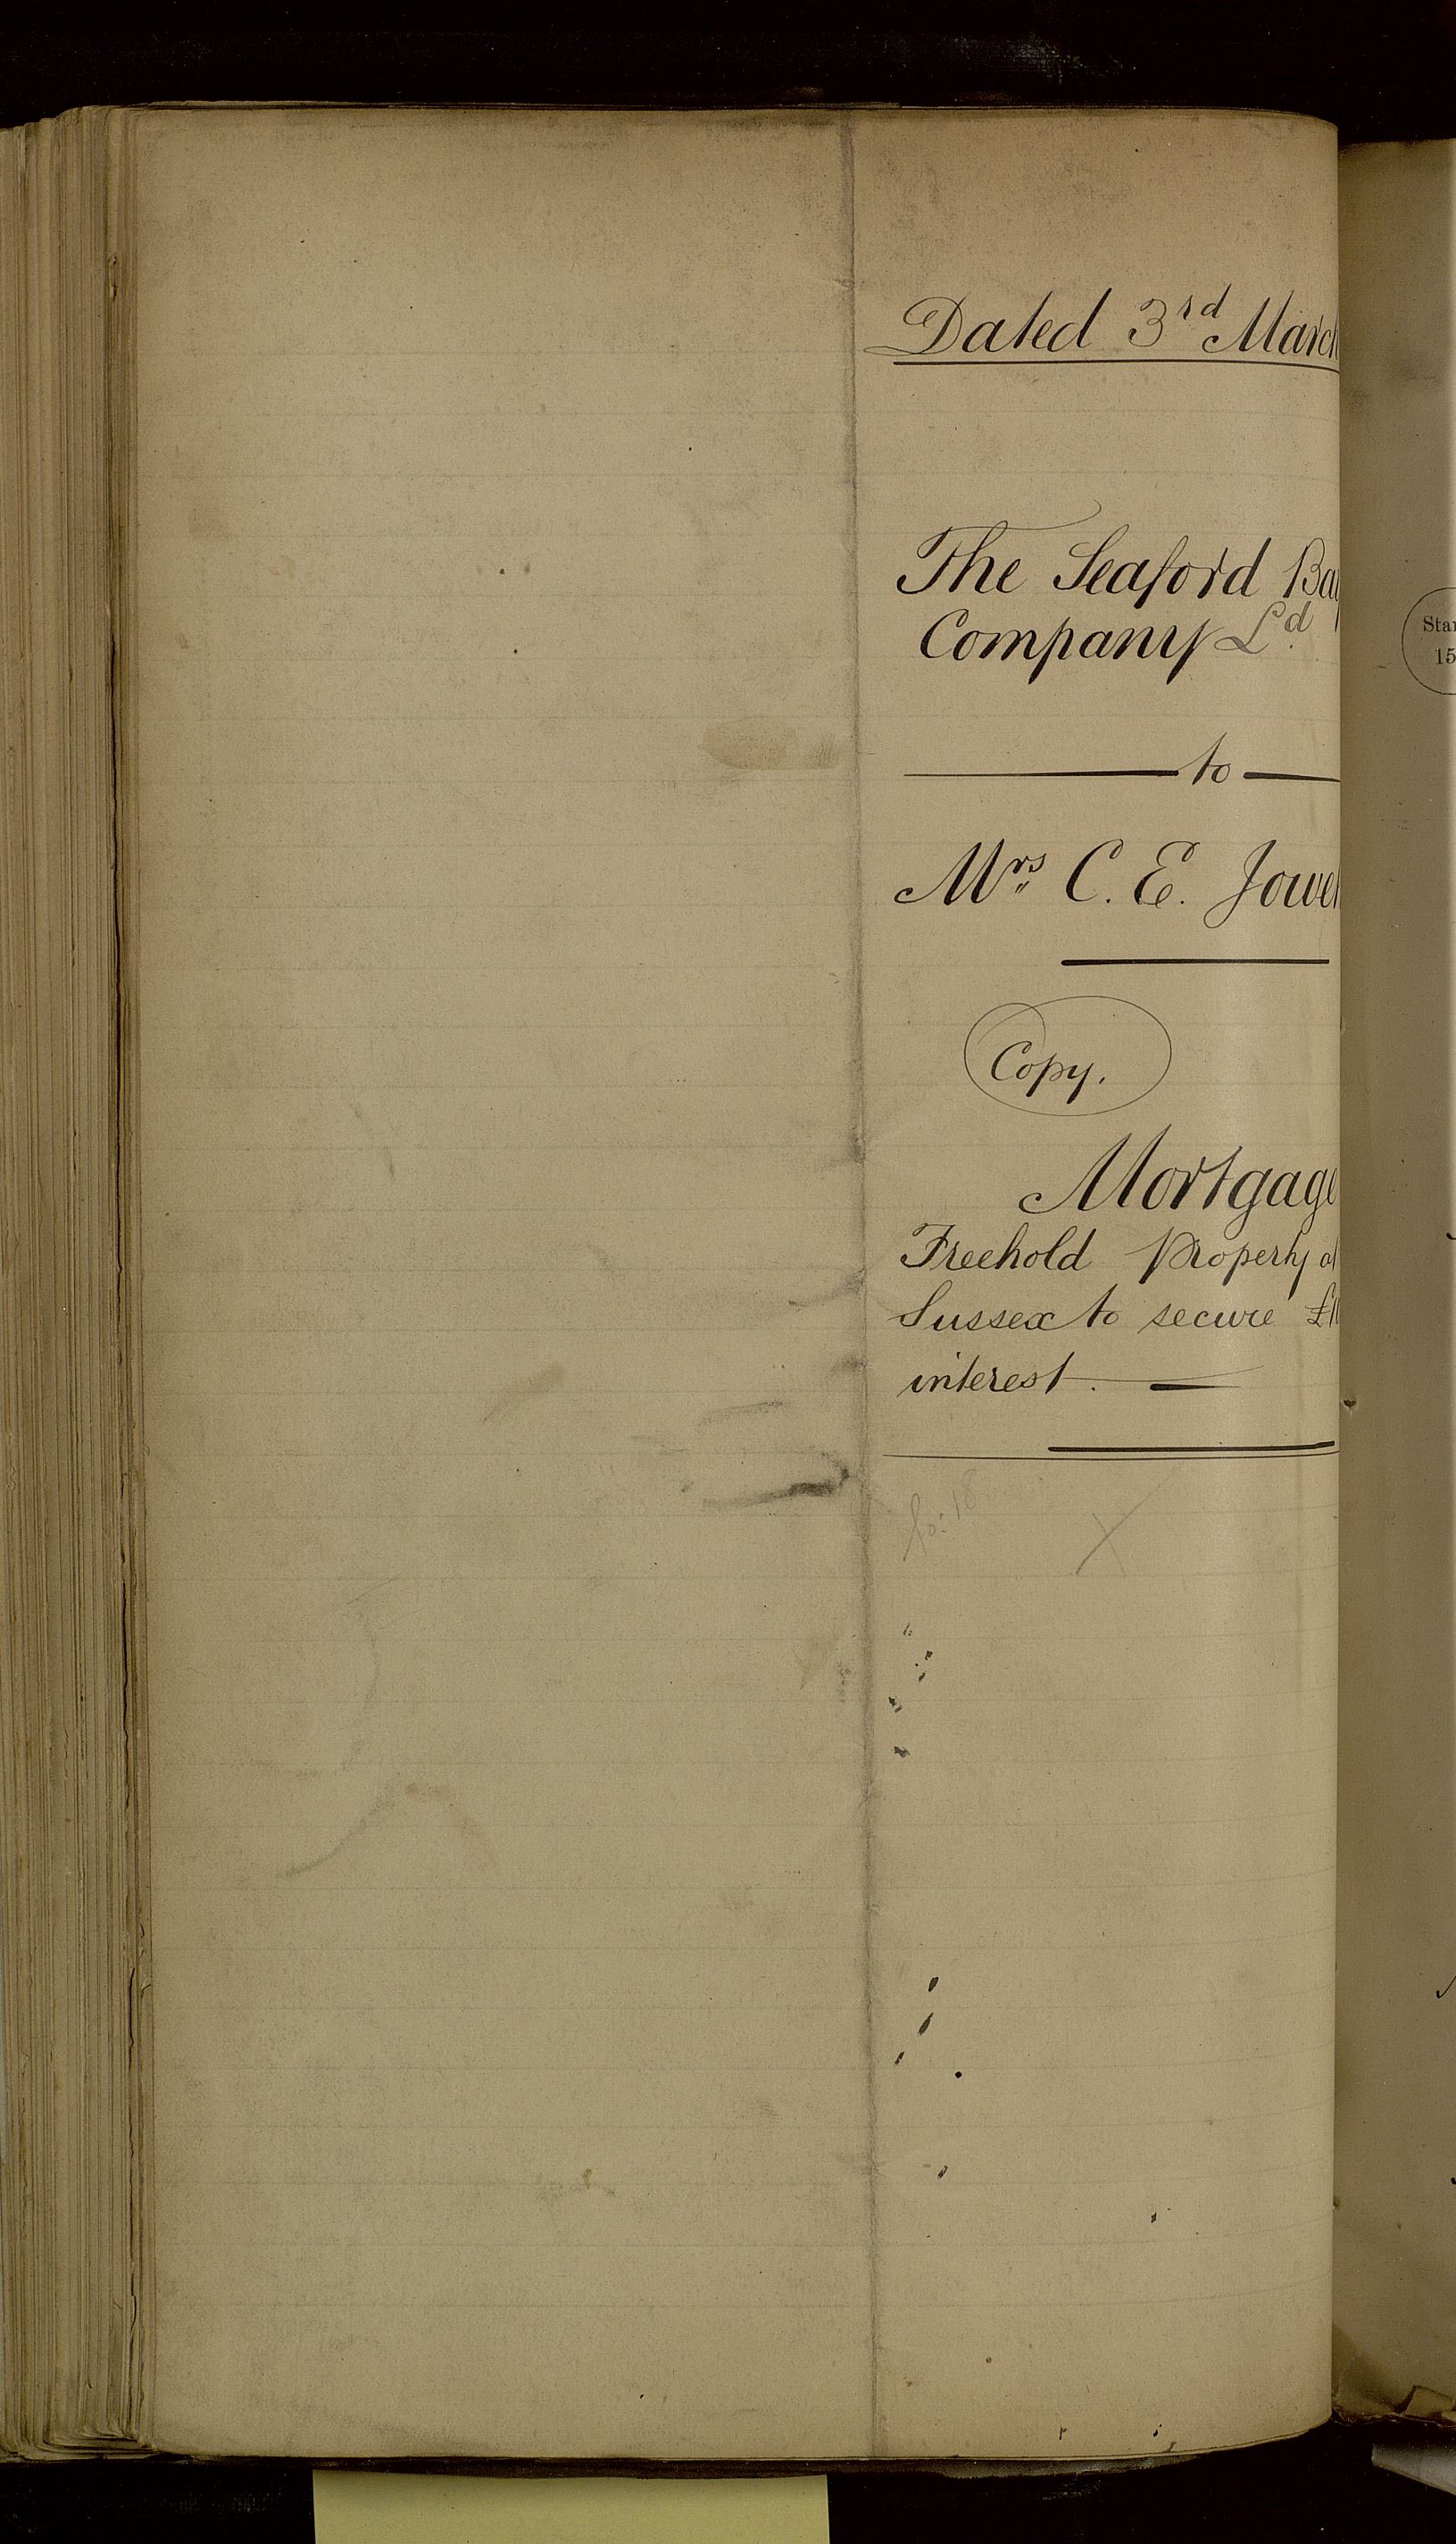 Dated 3rd March
The Seaford
Company Ld
to
Mrs C. E.
Copy.
Mortgage
Freehold Property
Sussex to secure
interest.
15